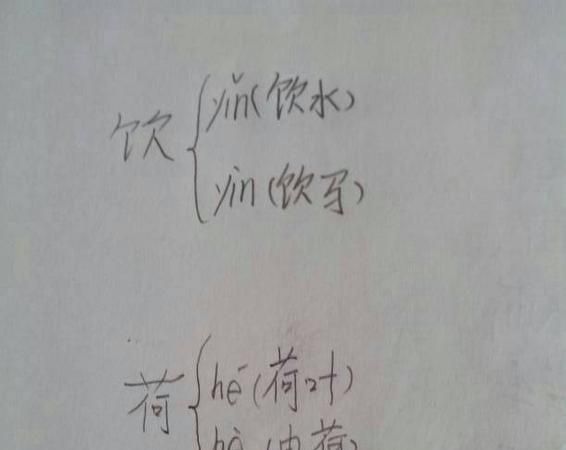 饮 { yǐn (饮水)
yìn (饮马)
荷 { hē (荷叶)
hè (电荷)